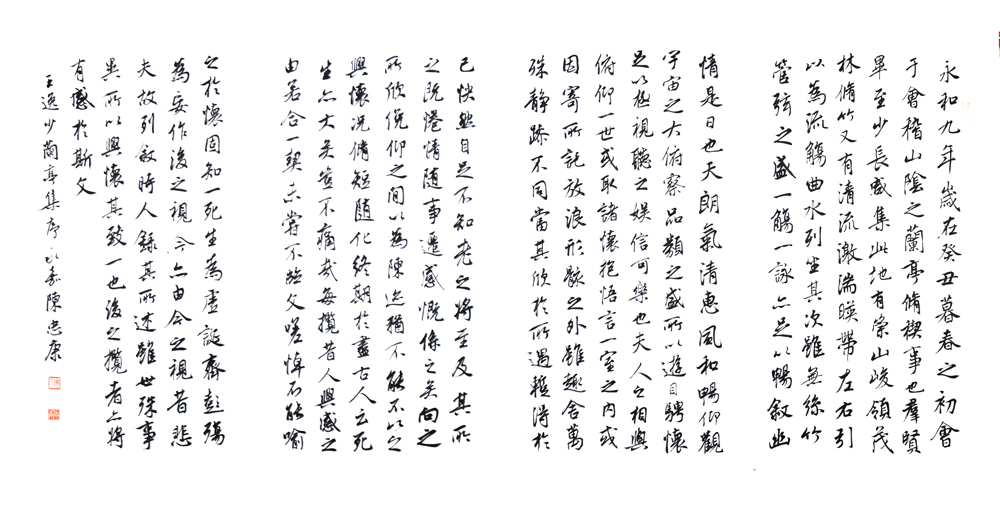 永和九年歲在癸丑暮春之初會
于會稽山陰之蘭亭脩禊事也羣賢
畢至少長咸集此地有崇山峻領茂
林脩竹又有清流激湍暎帶左右引
以為流觴曲水列坐其次雖無絲竹
管弦之盛一觴一詠亦足以暢敘幽
情是日也天朗氣清惠風和暢仰觀
宇宙之大俯察品類之盛所以遊目騁懷
足以極視聽之娛信可樂也夫人之相與
俯仰一世或取諸懷抱悟言一室之內或
因寄所託放浪形骸之外雖趣舍萬
殊静躁不同當其欣於所遇蹔得於
己快然自足不知老之將至及其所
之既惓情隨事遷感慨係之矣向之
所欣俛仰之間以為陳迹猶不能不以之
興懷況脩短隨化終期於盡古人云死
生亦大矣豈不痛哉每攬昔人興感之
由若合一契未嘗不臨文嗟悼不能喻
之於懷固知一死生為虛誕齊彭殤
為妄作後之視今亦由今之視昔悲
夫故列敘時人錄其所述雖世殊事
異所以興懷其致一也後之攬者亦將
有感於斯文
王逸少蘭亭集序永嘉陳忠康